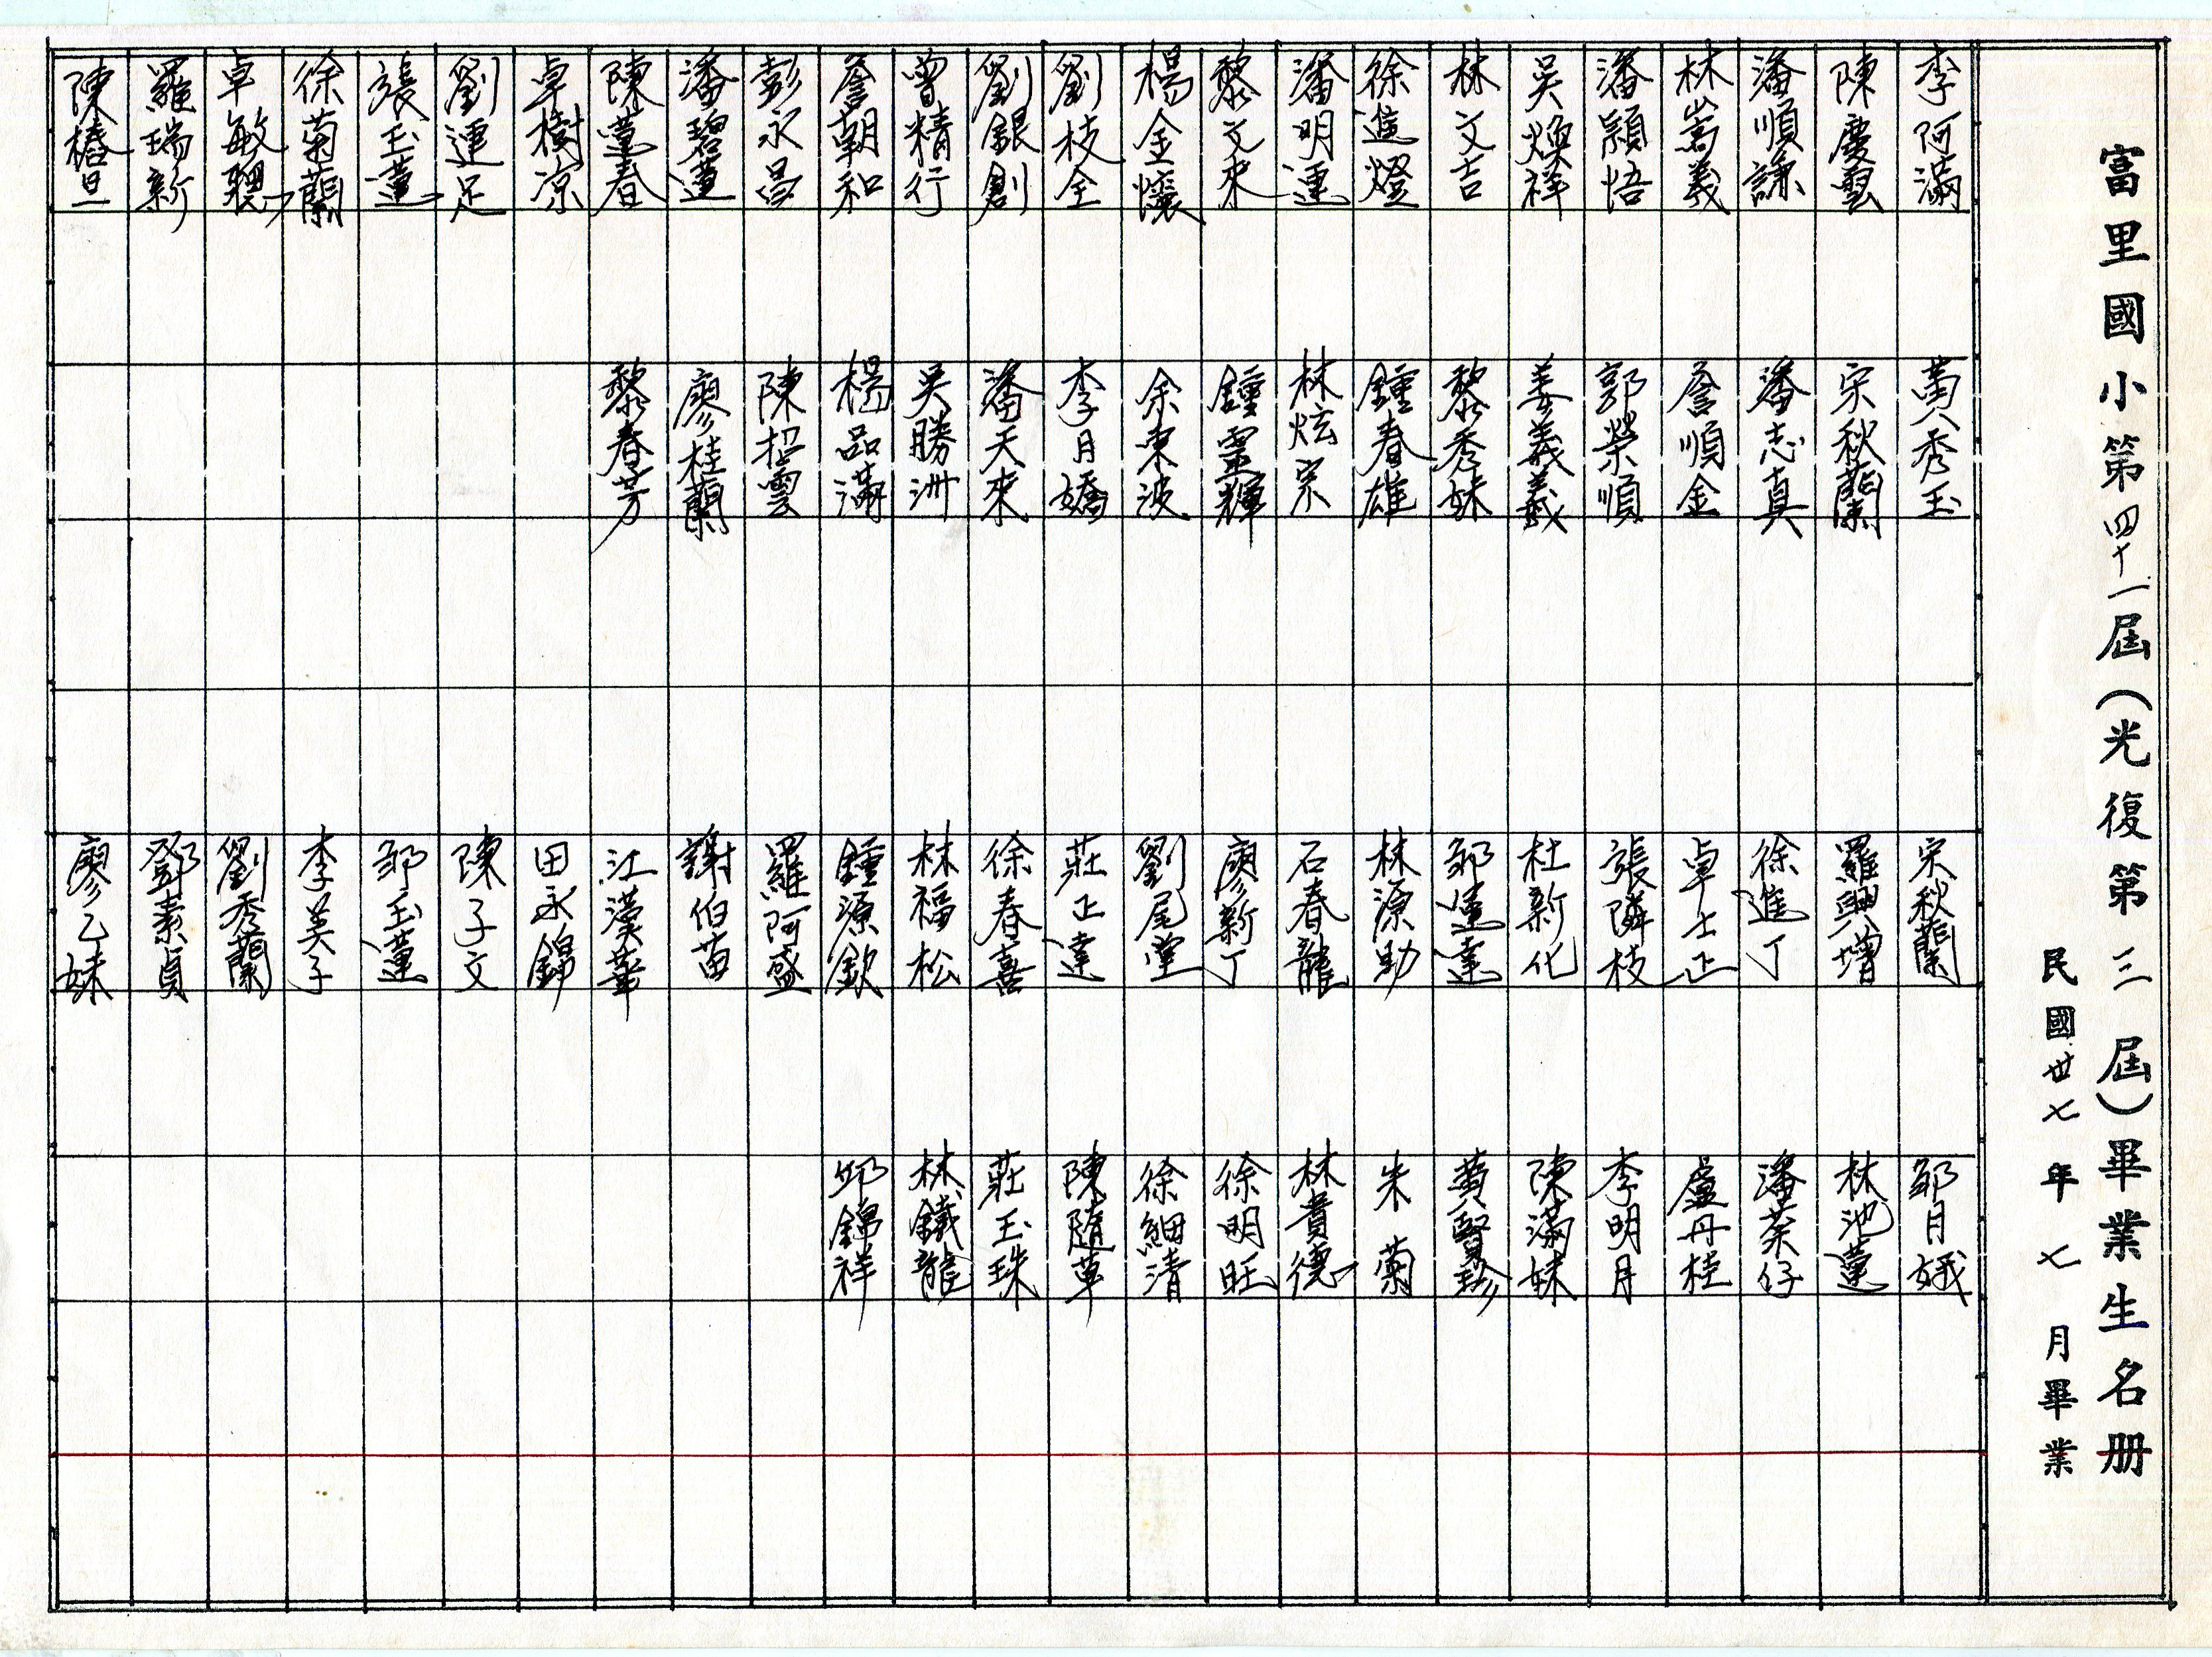 富里國小第四十一屆(光復第三屆)畢業生名册
民國卅七年七月畢業
李阿滿
陳慶雲
潘順謙
林嵩義
潘穎悟
吳煥祥
林文吉
徐進燈
潘明運
黎文來
楊全懷
劉枝全
劉銀創
曾精行
詹朝和
彭永昌
潘碧蓮
陳蓮春
卓樹涼
劉運足
張玉蓮
徐菊蘭
卓敏聰
羅瑞新
陳椿旦
黃秀玉
宋秋蘭
潘志真
詹順金
郭榮順
姜義義
黎秀妹
鍾春雄
林炫宗
鍾雲輝
余東波
李月嬌
潘天來
吳勝洲
楊品滿
陳招雲
廖桂蘭
黎春芳
宋秋蘭
羅興增
徐進丁
卓士正
張隣枝
杜新化
邹運達
林源助
石春龍
廖新丁
劉尾堂
莊正達
徐春喜
林福松
鍾源欽
羅阿盛
謝伯苗
江漢華
田永錦
陳子文
邹玉蓮
李美子
劉秀蘭
鄧素貞
廖乙妹
邹月娥
林池蓮
潘菜仔
盧丹桂
李明月
陳滿妹
黃賢珍
朱菊
林貴德
徐明旺
徐細清
陳隨草
莊玉珠
林鐵龍
邱錦祥